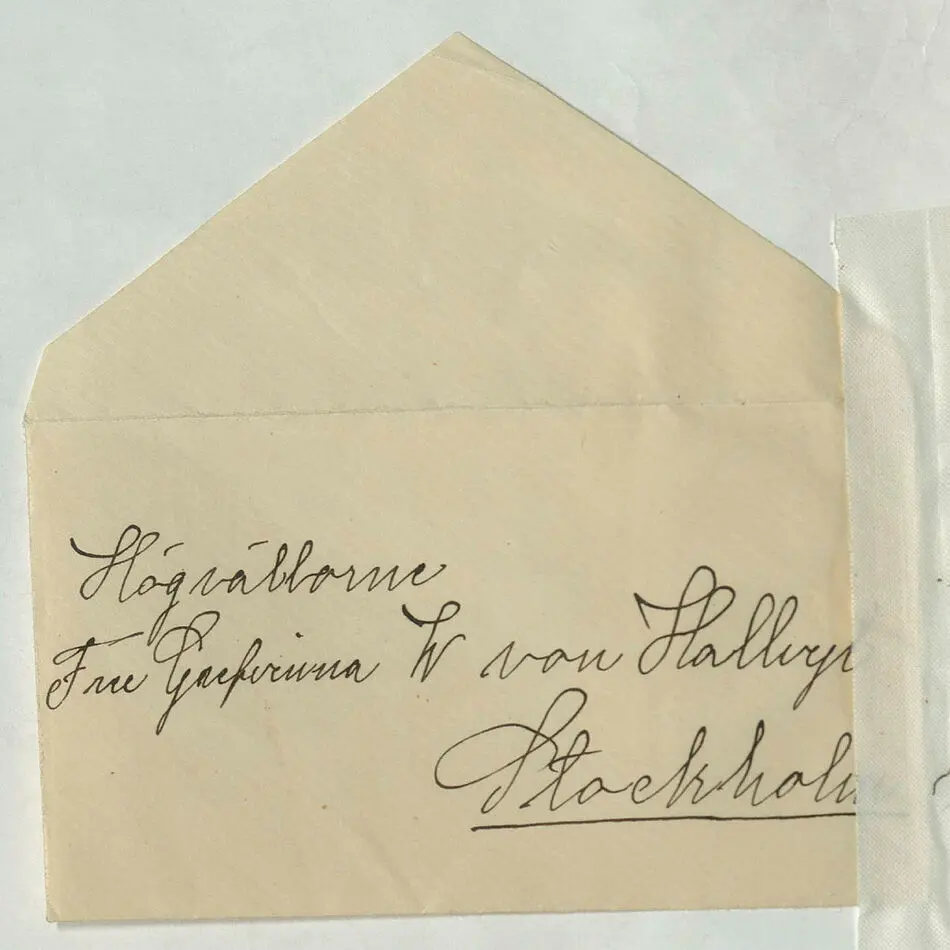 Högvälborne
Fru Grefvinna W von Hallwyl
Stockholm